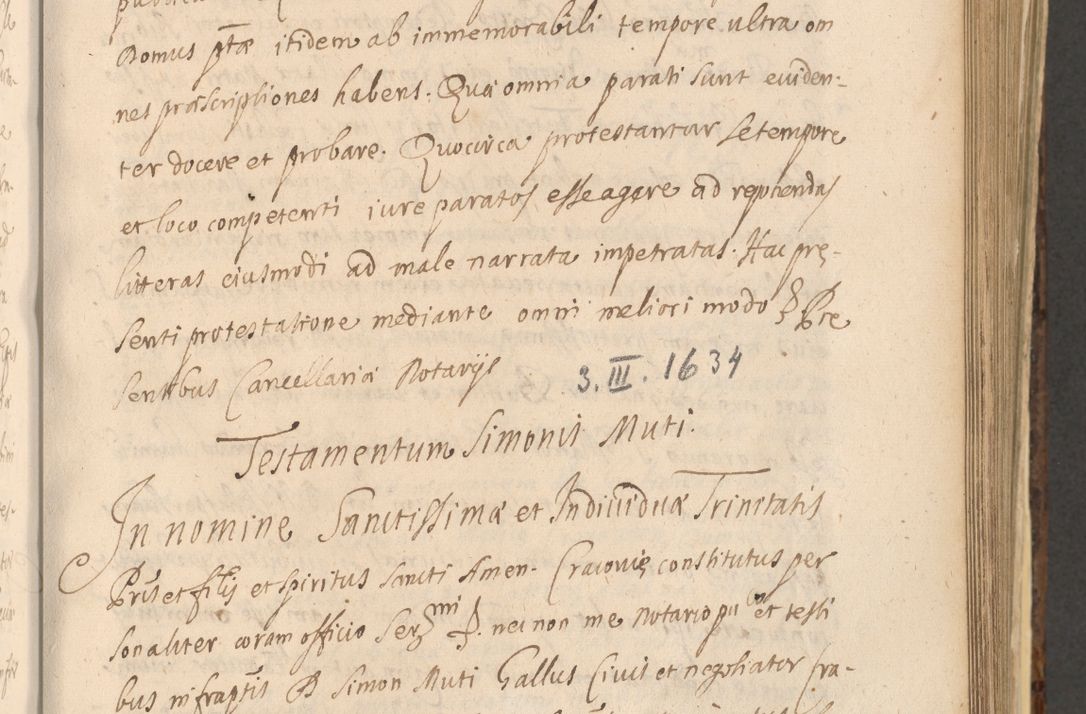 Domus ptæ itidem ab immemorabili tempore ultra om
nes præscriptiones habens. Quæ omnia parati sunt eviden-
ter docere et probare. Quocirca protestantur se tempore
et loco competenti iure paratos esse agere ad reponendas
litteras eiusmodi ad male narrata impetratas. Hac præ-
senti protestatione mediante omni meliori modo Præ
sentibus Cancellariæ Notarijs
3. III. 1634
Testamentum Simonis Muti.
In nomine Sanctissimæ et Individuæ Trinitatis
Pris et filij et spiritus sancti Amen. Cracoviæ constitutus per
sonaliter coram officio nec non me Notario et testi
bus infraptis D Simon Muti Gallus Civis et negotiator Cra-